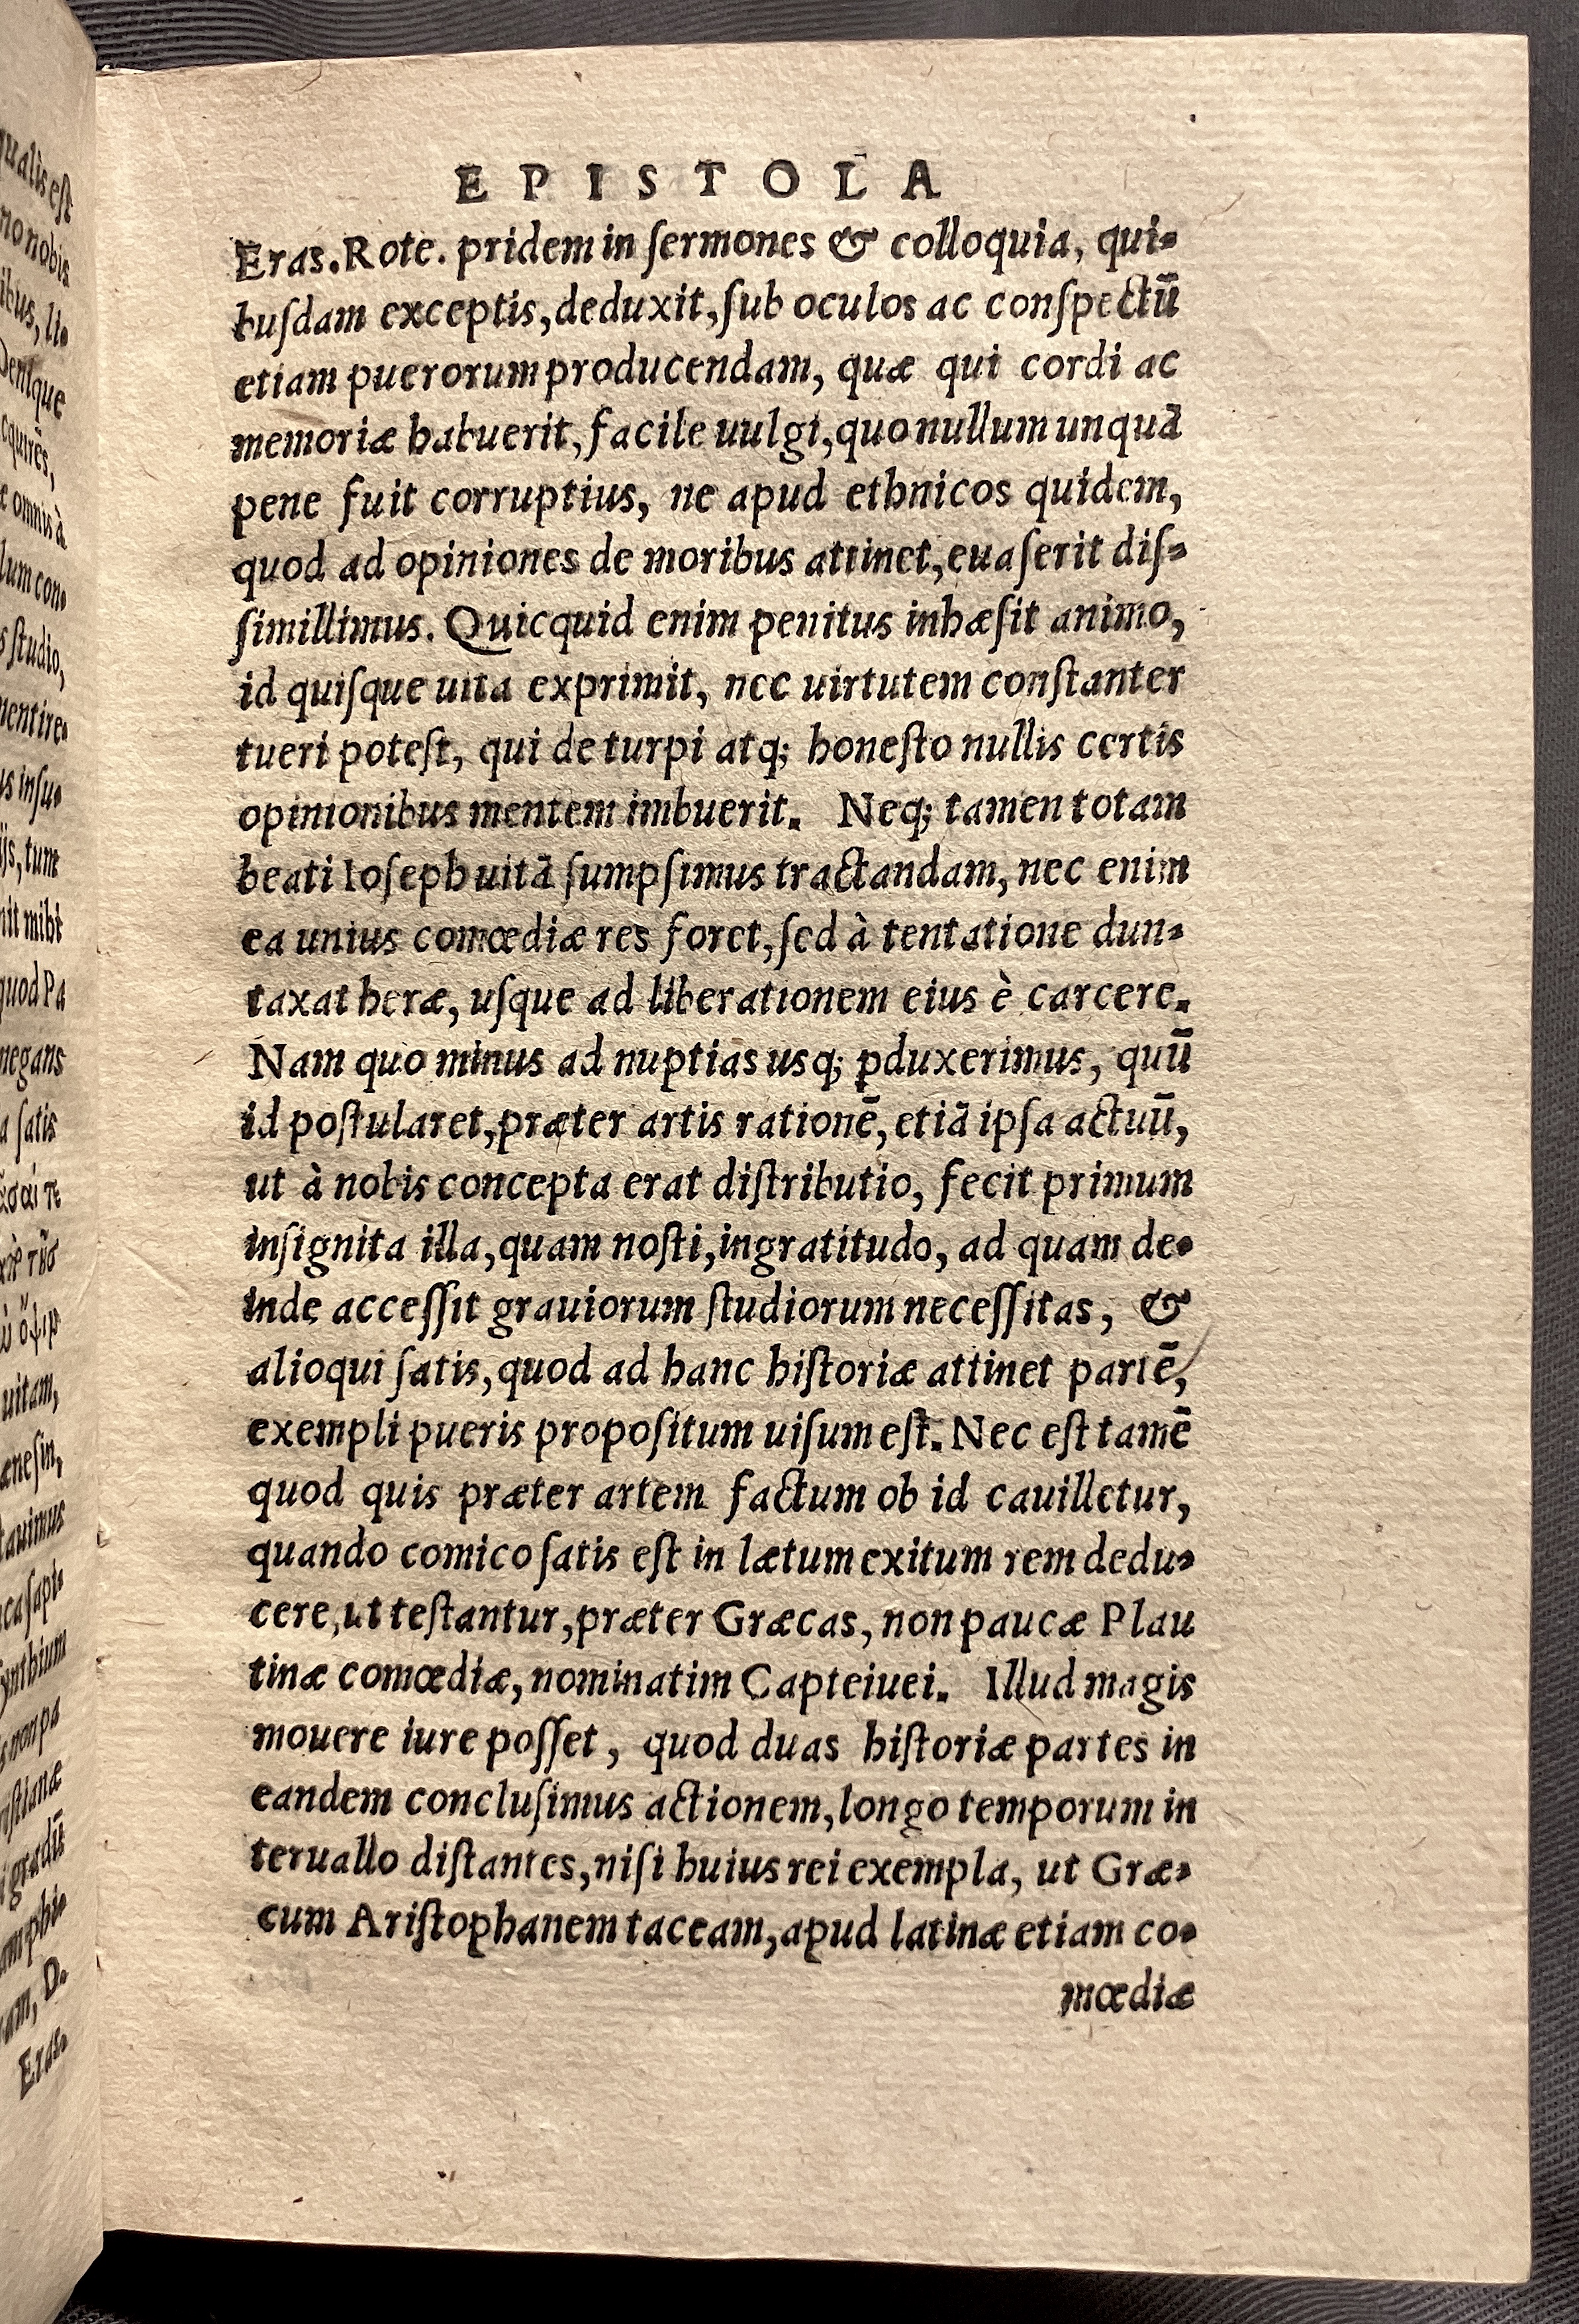 qualis est
no nobis
ibus, li-
Denique
cquirēs,
omnis à
lum con-
studio,
mentire-
us insu-
tum
nit mihi
quod Pa
negans
a satis
uitam,
nesin,
tauimus
ynthium
non pa
gradū
D.
Eras.
EPISTOLA
Eras. Rote. pridem in ſermones & colloquia, qui-
buſdam exceptis, deduxit, ſub oculos ac conſpectū
etiam puerorum producendam, quæ qui cordi ac
memoriæ habuerit, facile uulgi, quo nullum unquā
pene fuit corruptius, ne apud ethnicos quidem,
quod ad opiniones de moribus attinet, euaſerit diſ-
ſimillimus. Quicquid enim penitus inhæſit animo,
id quiſque uita exprimit, nec uirtutem conſtanter
tueri poteſt, qui de turpi atq; honeſto nullis certis
opinionibus mentem imbuerit. Neq; tamen totam
beati Ioſeph uitā ſumpſimus tractandam, nec enim
ea unius comœdiæ res foret, ſed à tentatione dun-
taxat heræ, uſque ad liberationem eius è carcere.
Nam quo minus ad nuptias usq; ꝓduxerimus, quū
id poſtularet, præter artis rationē, etiā ipſa actuū,
ut à nobis concepta erat diſtributio, fecit primum
inſignita illa, quam noſti, ingratitudo, ad quam de-
inde acceſſit grauiorum ſtudiorum neceſſitas, &
alioqui ſatis, quod ad hanc hiſtoriæ attinet partē,
exempli pueris propoſitum uiſum eſt. Nec eſt tamē
quod quis præter artem factum ob id cauilletur,
quando comico ſatis eſt in lætum exitum rem dedu-
cere, ut teſtantur, præter Græcas, non paucæ Plau
tinæ comœdiæ, nominatim Capteiuei. Illud magis
mouere iure poſſet, quod duas hiſtoriæ partes in
eandem concluſimus actionem, longo temporum in
teruallo diſtantes, niſi huius rei exempla, ut Græ-
cum Ariſtophanem taceam, apud latinæ etiam co-
mœdiæ